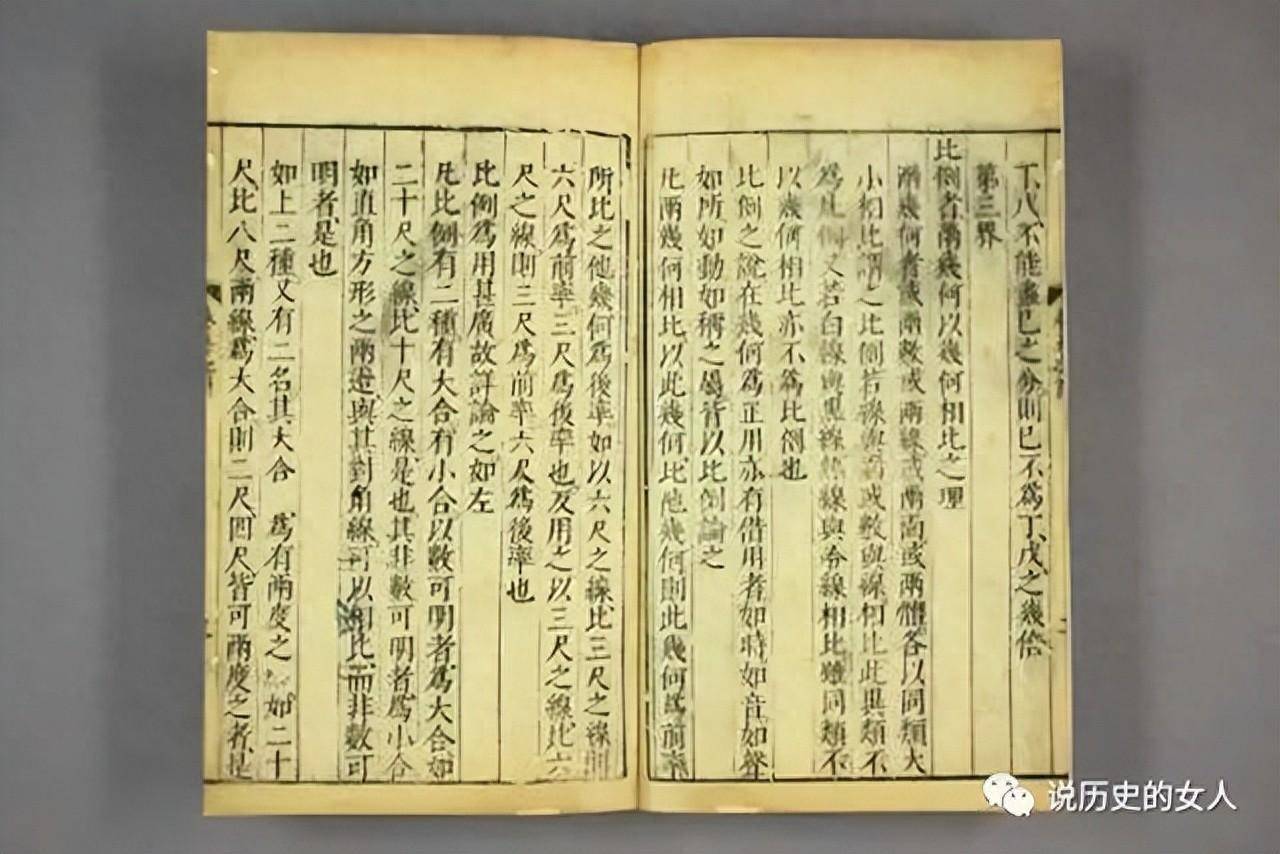 丁、八、不能盡己之分則己不為丁、戊之幾倍
第三界
比例者兩幾何以幾何相比之理
兩幾何者或兩數或兩線或兩面或兩體各以同類大
小相比謂之比例若線與面或數與線相比此異類不
為比例又若白線與黑線熱線與冷線相比雖同類不
以幾何相比亦不為比例也
比例之說在幾何為正用亦有借用者如時如音如聲
如所如動如稱之屬皆以比例論之
凡兩幾何相比以此幾何比他幾何則此幾何為前率
所比之他幾何為後率如以六尺之線比三尺之線則
六尺為前率三尺為後率也反用之以三尺之線比六
尺之線則三尺為前率六尺為後率也
比例為用甚廣故詳論之如左
凡比例有二種有大合有小合以數可明者為大合如
二十尺之線比十尺之線是也其非數可明者為小合
如直角方形之兩邊與其對角線可以相比而非數可
明者是也
如上二種又有二名其大合 為有兩度之 如二十
尺比八尺兩線為大合則二尺四尺皆可兩度之者是
说历史的女人